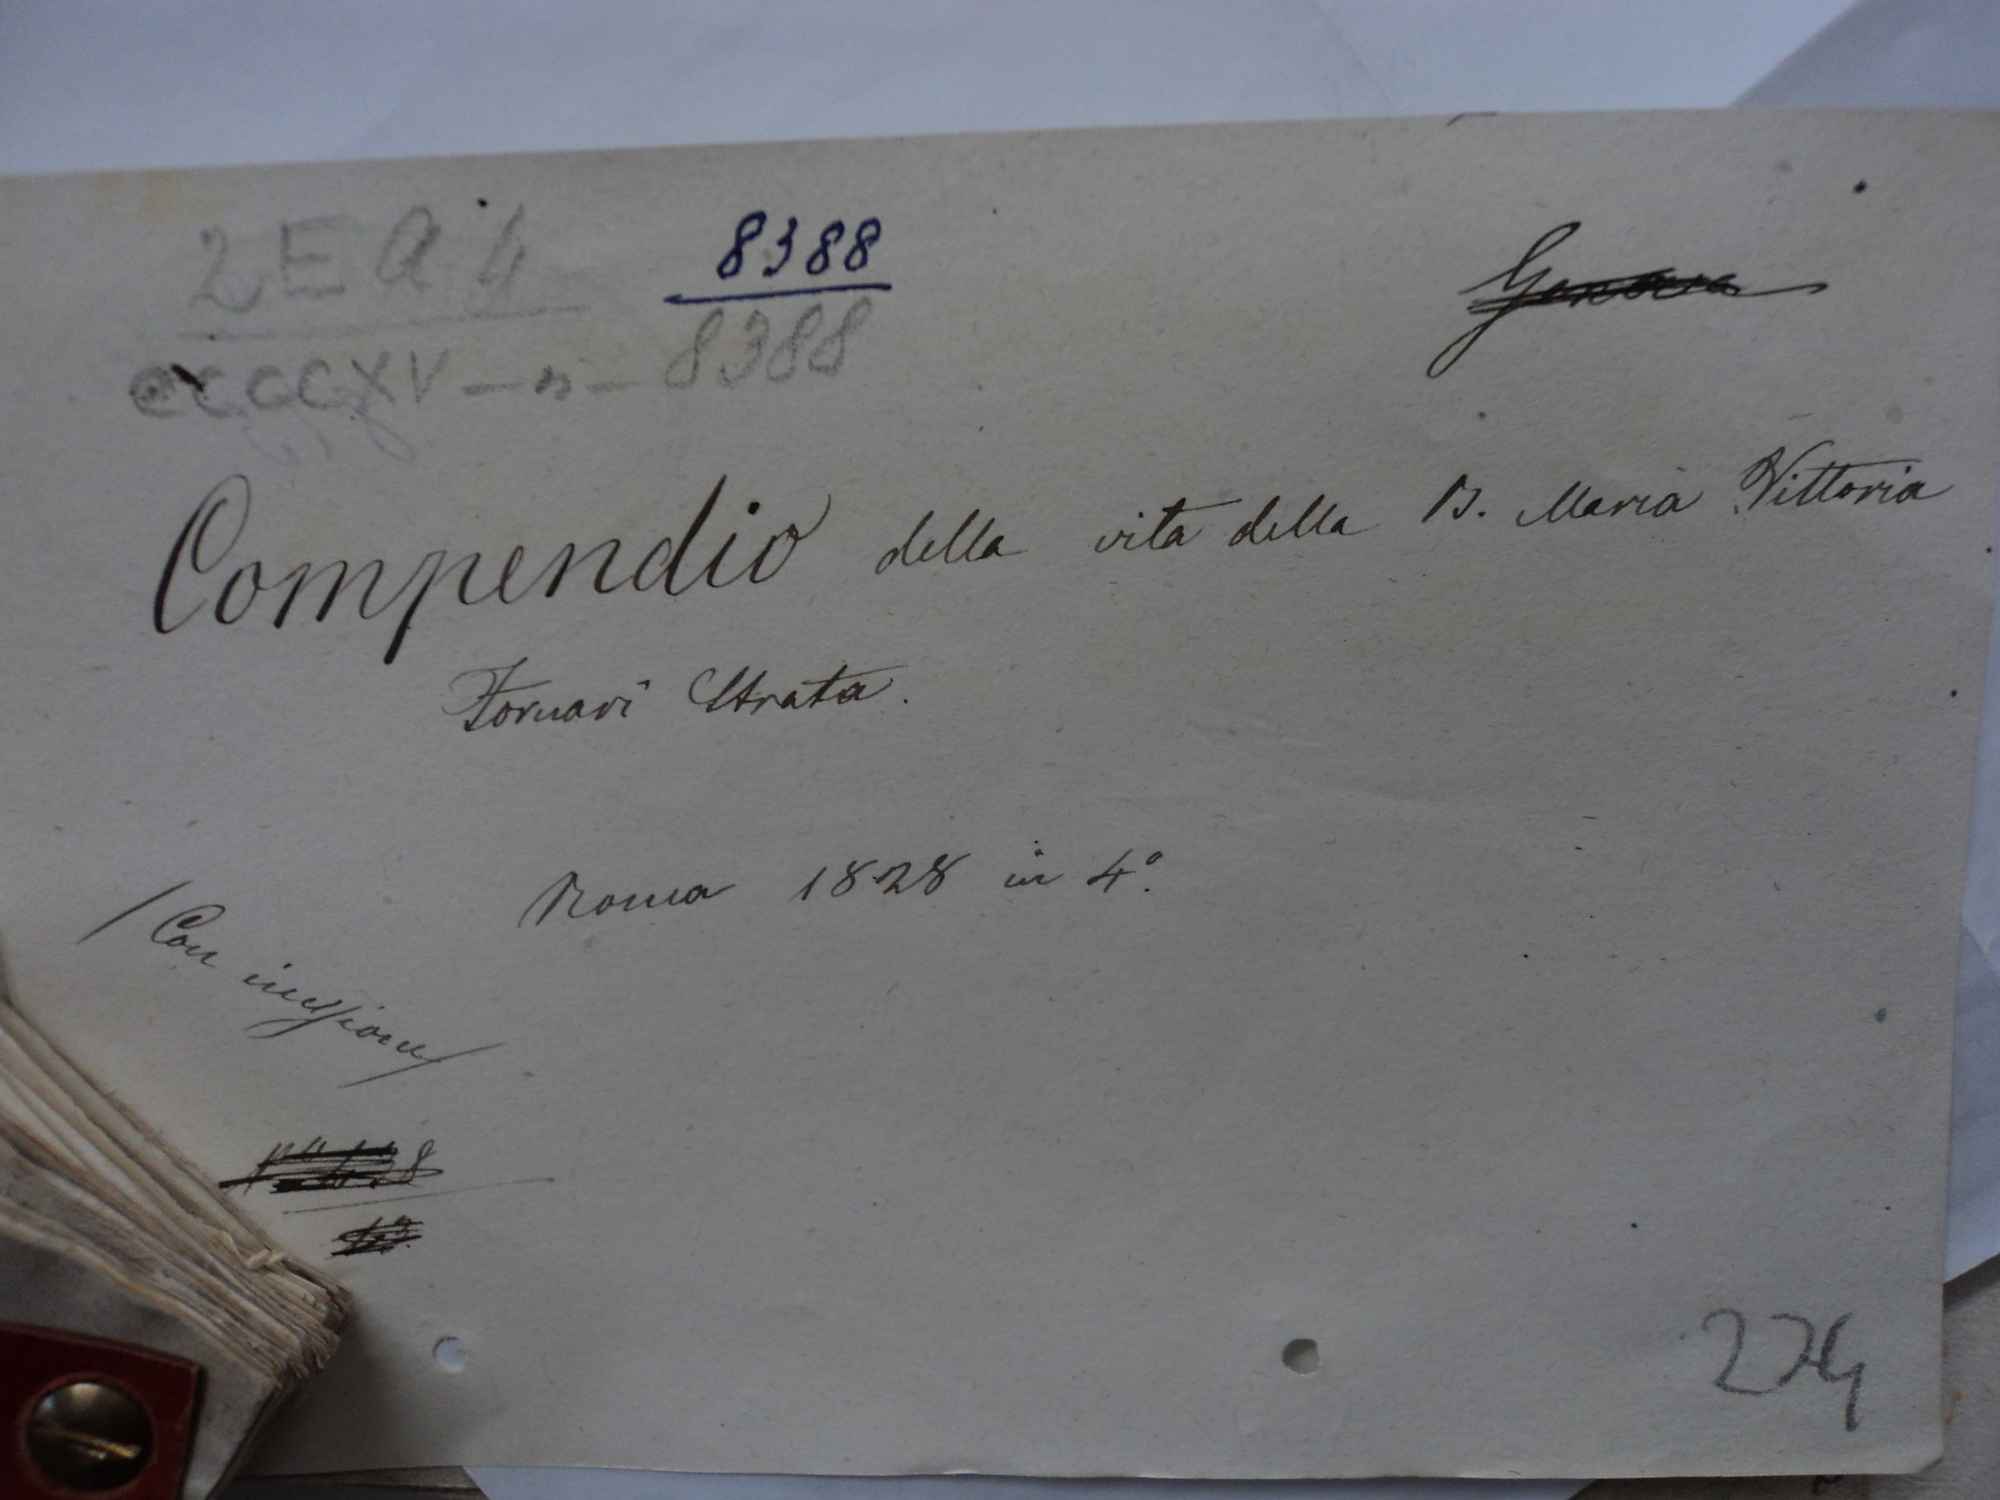 2 E A 4
8388
Genova
CCCCXV - n - 8388
Compendio della vita della B. Maria Vittoria
Fornari Strata.
Roma 1828 in 4°.
(Con incisione)
274